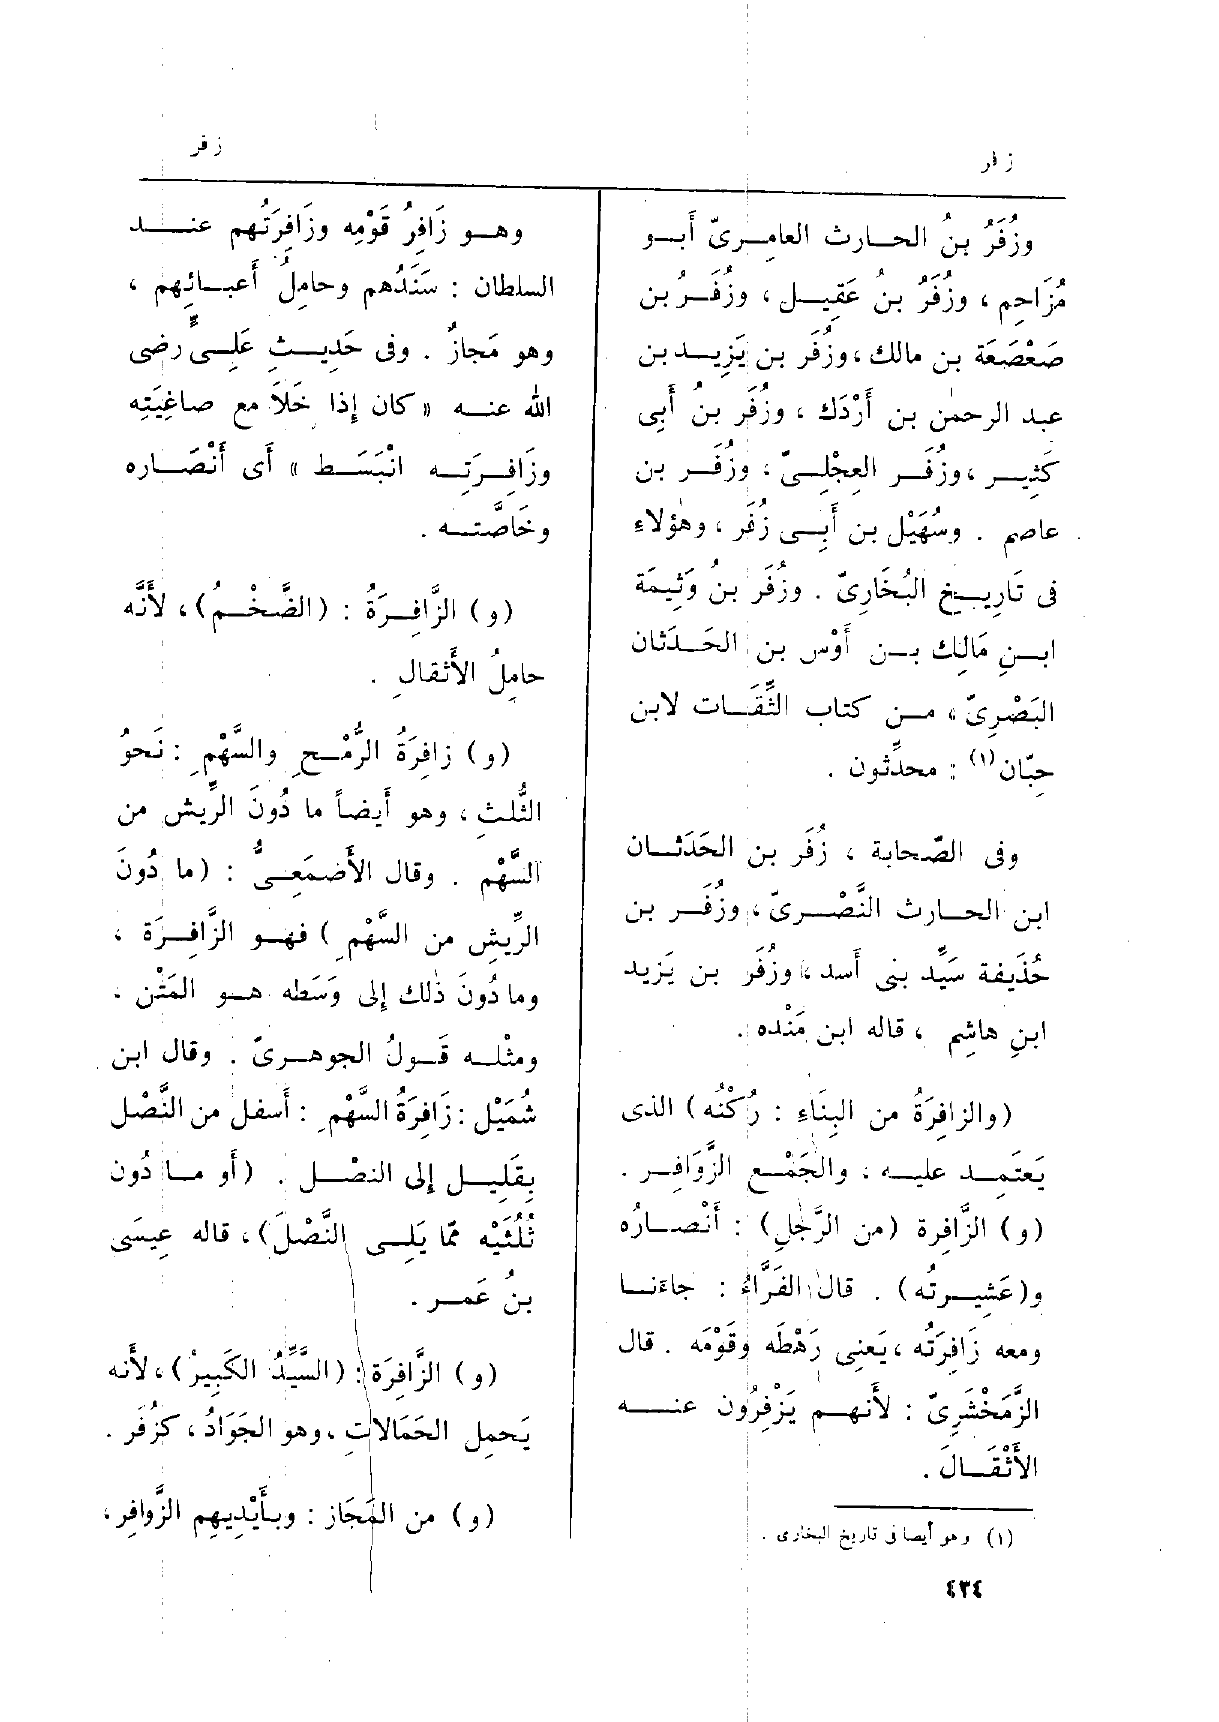 زفر
زفر
وزُفَرُ بنُ الحـارث العامـرىّ أَبـو
مُزَاحِم ، وزُفَرُ بنُ عَقِيـل ، وزُفَـرُ بن
صَعْصَعَة بن مالك ، وزُفَر بن يَزِيـد بن
عبد الرحمٰن بن أَرْدَك ، وزُفَر بنُ أَبى
كَثِيـر ، وزُفَـر العِجْلِـىّ ، وزُفَـر بن
عاصم . وسُهَيْل بن أَبِـى زُفَر ، وهٰؤلاءِ
فى تَارِيـخ البُخَارِىّ . وزُفَر بنُ وَثِيمَة
ابـنِ مَالِك بـن أَوْس بن الحَـدَثان
البَصْرِىّ ، مـن كتاب الثِّقَـات لابن
حِبّان (١) : محدِّثون .
وفى الصّحابة ، زُفَر بن الحَدَثـان
ابن الحـارث النَّصْـرىّ ، وزُفَـر بن
حُذَيفة سَيِّد بنى أَسد ، وزُفَر بن يَزيد
ابنِ هاشِم ، قاله ابن مَنْده .
(والزافِرَةُ من البِنَاءِ : رُكْنُه) الذى
يَعتَمِـد عليـه ، والجَمْـع الزَّوَافِـر .
(و) الزَّافِرة (من الرَّجُلِ) : أَنْصـارُه
و(عَشِيـرتُه) . قال الفَرَّاءُ : جاءَنـا
ومعه زَافِرَتُه ، يَعنِى رَهْطَه وقَوْمَه . قال
الزَّمَخْشَرِىّ : لأَنهـم يَزْفِرُون عنـه
الأَثْقَـالَ .
(١) وهو أيضا فى تاريخ البخارى .
وهـو زَافِرُ قَوْمِه وزَافِرَتُهم عنـد
السلطان : سَنَدُهم وحامِلُ أَعبـائِهم ،
وهو مَجازٌ . وفى حَدِيـثِ عَلِـىٍّ رضى
الله عنـه « كان إِذا خَلاَ مع صاغِيَتِه
وزَافِـرَتِـه انْبَسَـط » أَى أَنْصَـاره
وخَاصَّتـه .
(و) الزَّافِـرَةُ : (الضَّخْـمُ) ، لأَنَّه
حامِلُ الأَثقالِ .
(و) زافِرَةُ الرُّمْـحِ والسَّهْمِ : نَحوُ
الثُّلثِ ، وهو أَيضـاً ما دُونَ الرِّيش من
السَّهْم . وقال الأَصْمَعِـىُّ : (ما دُونَ
الرِّيش من السَّهْمِ ) فهـو الزَّافِـرَة ،
وما دُونَ ذٰلك إِلى وَسَطه هـو المَتْن .
ومثْلـه قَـولُ الجوهـرىّ . وقال ابن
شُمَيْل : زَافِرَةُ السَّهْمِ : أَسفل من النَّصْل
بِقَلِيـل إِلى النصْـل . (أَو مـا دُون
ثُلُثَيْه ممّا يَلِـى النَّصْلَ) ، قاله عِيسَى
بنُ عُمَـر .
(و) الزَّافِرَة : (السَّيِّدُ الكَبِيرُ) ، لأَنه
يَحمِل الحَمَالاتِ ، وهو الجَوَادُ ، كزُفَر .
(و) من المَجَاز : وبـأَيْدِيهم الزَّوافِر ،
٤٣٤